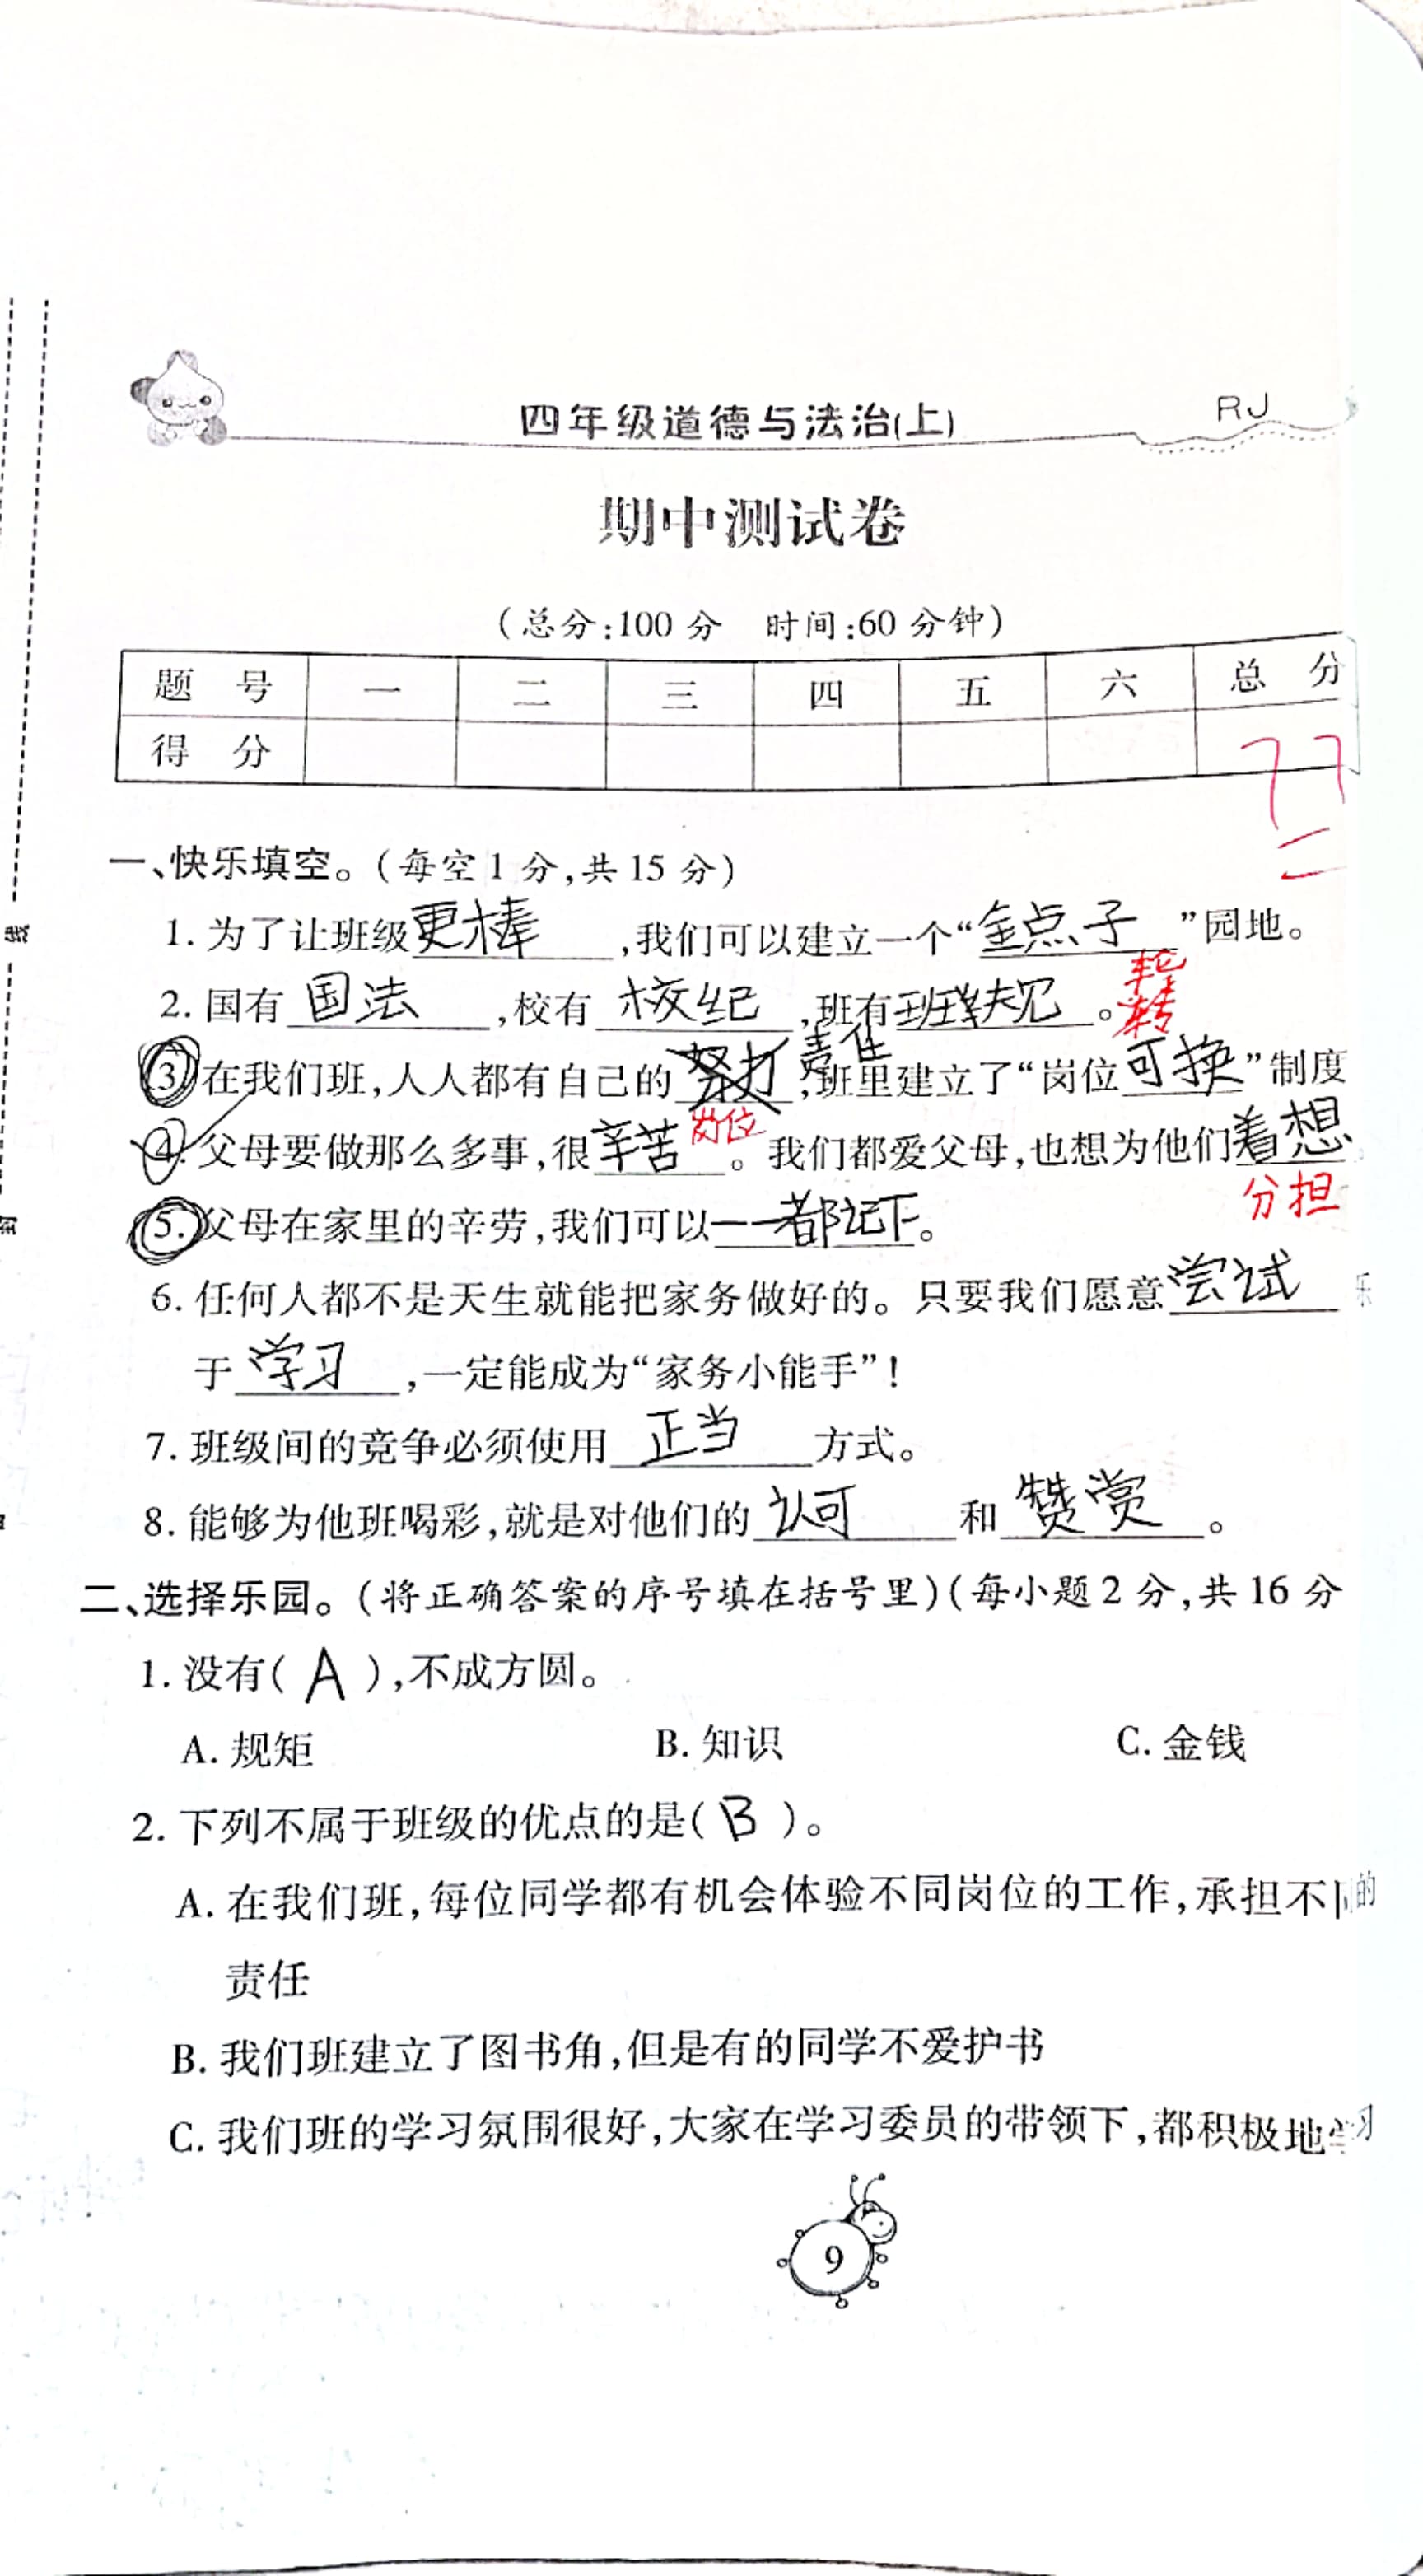 四年级道德与法治(上)
RJ
期中测试卷
(总分:100 分 时间:60 分钟)
题 号 一 二 三 四 五 六 总 分
得 分 77
一、快乐填空。(每空 1 分,共 15 分)
1. 为了让班级更棒,我们可以建立一个“金点子”园地。
2. 国有国法,校有校纪,班有班规。
轮转
3 在我们班,人人都有自己的责任,班里建立了“岗位可换”制度
岗位
4. 父母要做那么多事,很辛苦。我们都爱父母,也想为他们着想
分担
5. 父母在家里的辛劳,我们可以一一都记下。
6. 任何人都不是天生就能把家务做好的。只要我们愿意尝试 乐
于学习,一定能成为“家务小能手”!
7. 班级间的竞争必须使用正当方式。
8. 能够为他班喝彩,就是对他们的认可和赞赏。
二、选择乐园。(将正确答案的序号填在括号里)(每小题 2 分,共 16 分
1. 没有( A ),不成方圆。
A. 规矩 B. 知识 C. 金钱
2. 下列不属于班级的优点的是( B )。
A. 在我们班,每位同学都有机会体验不同岗位的工作,承担不同的
责任
B. 我们班建立了图书角,但是有的同学不爱护书
C. 我们班的学习氛围很好,大家在学习委员的带领下,都积极地学习
9
线
封